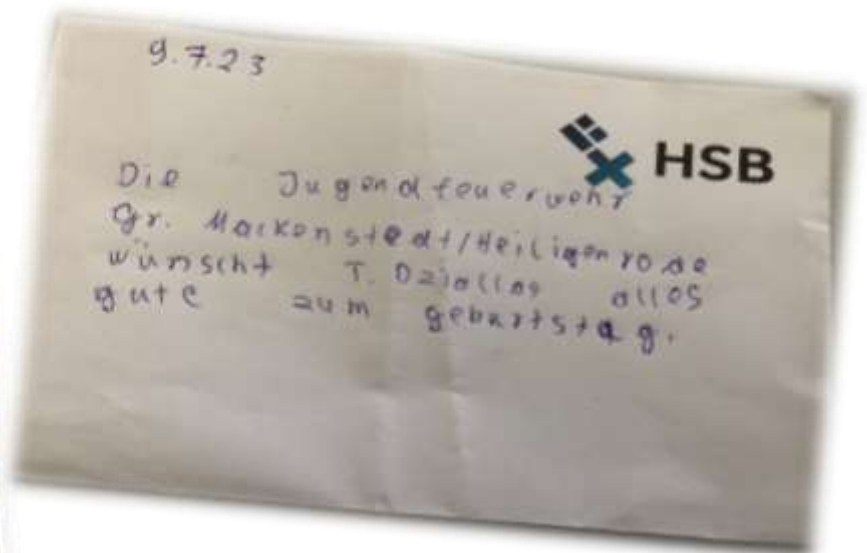 9.7.23
HSB
Die Jugendfeuerwehr
Gr. Mackenstedt/Heiligenrode
wünscht T. Dziallas alles
gute zum geburtstag.